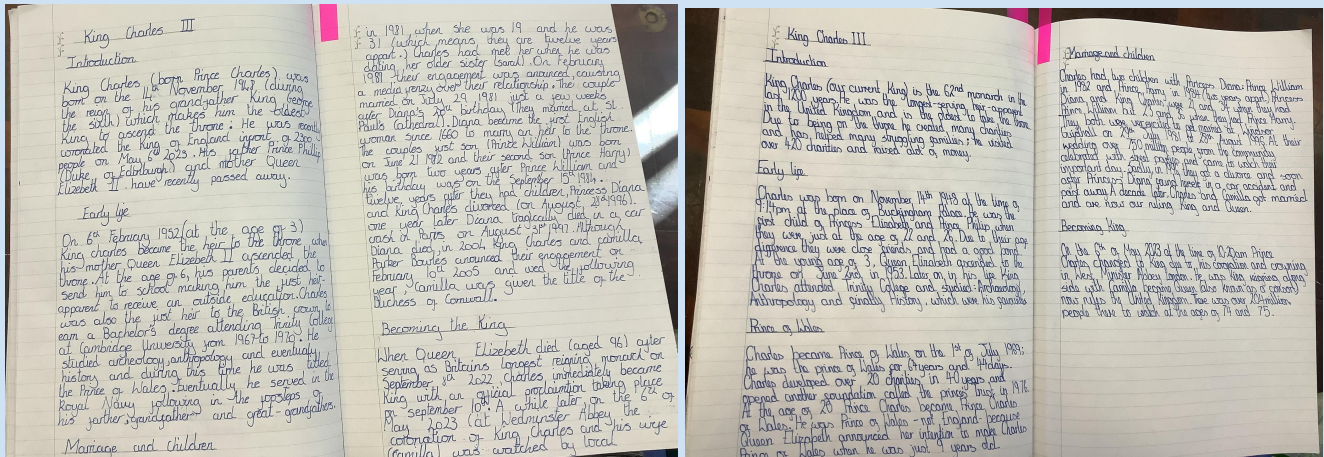 King Charles III
Introduction
King Charles (born Prince Charles) was
born on the 14th November 1948 (during
the reign of his grandfather King George
the sixth) which makes him the oldest
King to ascend the throne. He was recently
coronated the King of England infront of 2200
people on May 6th 2023. His father Prince Phillip
(Duke of Edinburgh) and mother Queen
Elizebeth II have recently passed away.
Early life
On 6th February 1952 (at the age of 3)
King charles became the heir to the throne when
his mother Queen Elizebeth II ascended the
throne. At the age of 6, his parents decided to
send him to school making him the first heir-
apparent to receive an outside education. Charles
was also the first heir to the British crown to
earn a Bachelor's degree attending Trinity College
at Cambridge University from 1967 to 1970. He
studied archeology, anthropology and eventually
history and during this time he was titled
the Prince of Wales. Eventually he served in the
Royal Navy following in the footsteps of
his father, grandfather and great-grandfathers.
Marriage and children
in 1981, when she was 19 and he was
31 (which means, they are twelve years
appart). Charles had met her when he was
dating her older sister (Sarah). On February
1981 their engagement was anounced, causing
a media frenzy over their relationship. The couple
married on July 29, 1981 just a few weeks
after Diana's 20th birthday (they married at St.
Paul's Cathedral). Diana became the first English
woman since 1660 to marry an heir to the throne.
The couples first son (Prince William) was born
on June 21 1982 and their second son (Prince Harry)
was born two years after Prince William and
his birthday was on the September 15th 1984.
twelve years after they had children, Princess Diana
and King Charles divorced (on August, 28th 1996).
one year later Diana tragically died in a car
crash in Paris on August 31st 1997. Although
Diana died, in 2004 King Charles and camilla
Parker Bowles anounced their engagement on
february 10th 2005 and wed the following
year, Camilla was given the title of the
Duchess of Cornwall.
Becoming the King
When Queen Elizebeth died (aged 96) after
serving as Britains longest reigning monarch on
September 8th 2022, Charles immediately became
King with an official proclamation taking place
on september 10th. A while later, on the 6th of
May 2023 (at Wedminster Abbey the
coronation of King Charles and his wife
(Camilla) was watched by local
King Charles III
Introduction
King Charles (our current King) is the 62nd monarch in the
last 1200 years. He was the longest-serving heir-apparent
in the United Kingdom and is the oldest to take the throne.
Due to being on the throne he created many charities
and has helped many struggling families: he visited
over 420 charities and raised alot of money.
Early life
Charles was born on November 14th 1948 at the time of
9:14pm at the place of Buckingham Palace. He was the
first child of Princess Elizabeth and Prince Philip when
they were just at the age of 22 and 26. Due to their age
difference they were close friends and had a good bond.
At the young age of 3, Queen Elizabeth ascended to the
throne on June 2nd in 1953. Later on, in his life King
Charles attended Trinity College and studied: Archaeology,
Anthropology and finally History, which were his favourites
Prince of Wales
Charles became Prince of Wales on the 1st of July 1989:
he was the prince of Wales for 64 years and 44 days.
Charles developed over 20 charities in 40 years and
opened another foundation called the princes trust in 1976.
At the age of 20 Prince Charles became Prince Charles
of Wales. He was Prince of Wales - not England because
Queen Elizabeth announced her intention to make Charles
Prince of Wales when he was just 9 years old.
Marriage and children
Charles had two children with Princess Diana: Prince William
in 1982 and Prince Harry in 1984 (two years apart). Princess
Diana and King Charles were 21 and 34 when they had
Prince
They both were
Cathedral on 29th July 1981
wedding over 750 million people from the community
celebrated with street parties and came to watch their
important day. Sadly in 1996 they got a divorce and soon
after Princess Diana found herself in a car accident and
past away. A decade later, Charles and Camilla got married
and are now our ruling King and Queen.
Becoming King
On the 6th of May 2023 at the time of 10:20am Prince
Charles advanced to King after his coronation and crowning
in West Minister Abbey London. He was King reigning along
side with Camilla became Queen also known as Queen consort
now rules the United Kingdom. There was over 20.4 million
people there to watch at the ages of 74 and 75.